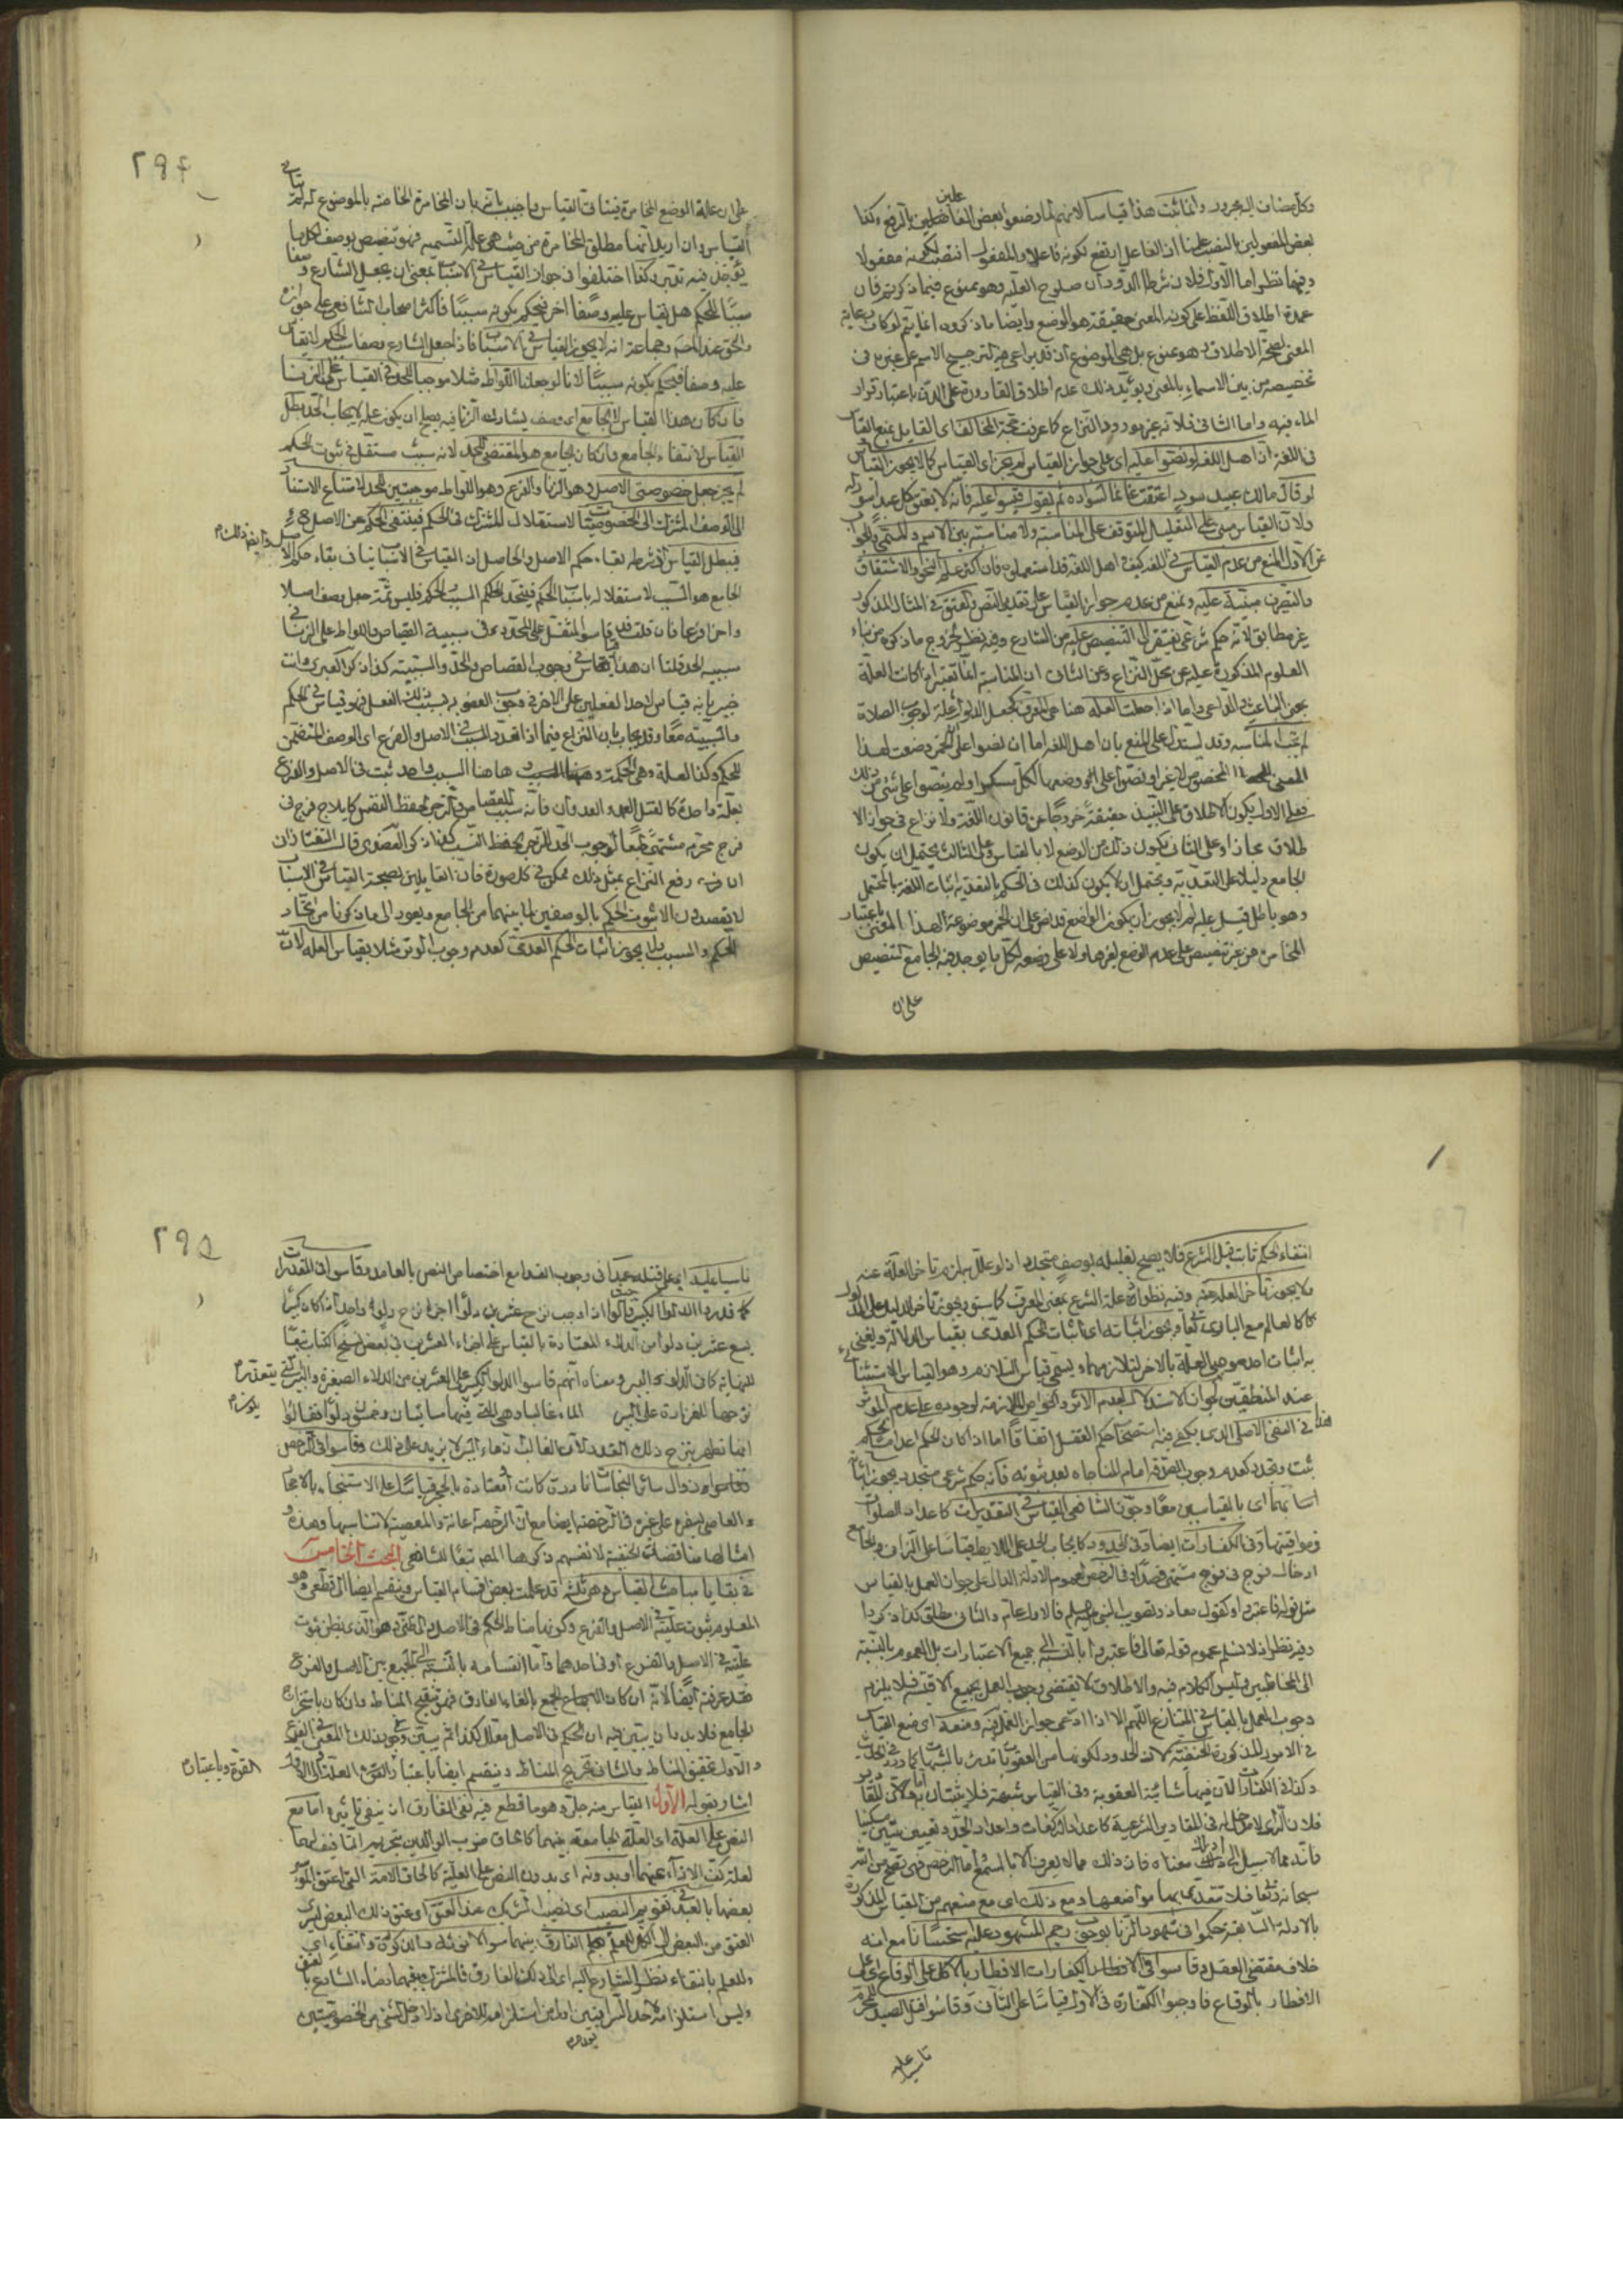 وكل مضاف اليه مجرور وانما ثبت هذا قياسا لانهم لما وصفوا بعض الفاعلين بالرفع وكذا
بعض المفعولين بالنصب علمنا ان الفاعل ارتفع لكونه فاعلا والمفعول انتصب لكونه مفعولا
وفيهما نظر اما الاول فلان شرط الدوران صلوح العلية وهو ممنوع فيما ذكرتم فان
عمدة اطلاق اللفظ على كونه المعنى حقيقة هو الوضع وايضا ما ذكروه انما يتم لو كان رعاية
المعنى لصحة الاطلاق وهو ممنوع بل هي الموضوع ان قد يراعى فيه لترجيح الاسم على غيره في
تخصيصه من بين الاسماء بالمعنى ويؤيد ذلك عدم اطلاق القارورة على الدن باعتبار قرار
الماء فيه واما الثاني فلانه غير مورد النزاع كما عرفت حجة المخالف اي القايل بمنع القياس
في اللغة ان اهل اللغة لو نصوا عليه اي على جواز القياس لم يجز اي القياس كما لا يجوز القياس
لو قال مالك عبيد سود اعتقت غانما لسواده ثم يقول قيسوا عليه فانه لا يعتق كل عبد اسود له
ولان القياس مبني على التعليل المتوقف على المناسبة ولا مناسبة بين الاسم والمسمى والجواب
عن الاول المنع من عدم القياس في اللغة كيف اهل اللغة قد استعملوه فان اكثر علم النحو والاشتقاق
والتصريف مبنية عليه ونمنع من عدم جواز القياس على تقدير النص والعتق في المثال المذكور
غير مطابق لانه حكم شرعي يفتقر الى التنصيص عليه من الشارع وفيه نظر لخروج ما ذكره من بناء
العلوم المذكورة عليه عن محل النزاع وعن الثاني ان المناسبة انما تعتبر ان كانت العلة
بمعنى الباعث والداعي واما اذا جعلت العلة هنا هي المعرف كجعل الدلوك علة لوجوب الصلاة
لم تجب المناسبة وقد يستدل على المنع بان اهل اللغة اما ان نصوا على ان الخمر وضعت لهذا
المعنى المخصوص لا غير او نصوا على انه وضع لكل مسكر او لم ينصوا على شيء من ذلك
فعلى الاول يكون الاطلاق على النبيذ حقيقة خروجا عن قانون اللغة ولا نزاع في جواز الا
طلاق مجازا وعلى الثاني يكون ذلك من الوضع لا بالقياس وعلى الثالث يحتمل ان يكون
الجامع دليلا على التعدية ويحتمل ان لا يكون كذلك فالحكم بالتعدية اثبات اللغة بالمحتمل
وهو باطل قيل عليه لم لا يجوز ان يكون الواضع قد نص على ان الخمر موضوعة لهذا المعنى باعتبار
المخامرة من غير تنصيص على عدم الوضع لغيرها ولا على وضعه لكل ما يوجد فيه الجامع لتنصيص
على ان
٢٩٤
على ان علة الوضع المخامرة فيتاتى القياس واجيب بانه ان المخامرة الخاصة بالموضوع له لم يتاتى
القياس وان اريد انها مطلق المخامرة من حيث هي علة التسمية فهو تنصيص بوصف لكل ما
يوجد فيه تدبر وكذا اختلفوا في جواز القياس في الاسباب بمعنى ان يجعل الشارع وصفا
سببا للحكم هل يقاس عليه وصفا اخر فيحكم بكونه سببا فاكثر اصحاب الشافعي على جوازه
والحق عند المصـ وجماعة انه لا يجوز القياس في الاسباب فاذا جعل الشارع وصفا سبب الحكم لا يقاس
عليه وصفا فيحكم بكونه سببا لانا لو جعلنا اللواط مثلا موجبا للحد في القياس على الزنا
فان كان هذا القياس لا لجامع اي وصف يشارك الزنا فيه يصلح ان يكون علة لايجاب الحد بطل
القياس لانتفاء الجامع وان كان الجامع هو المقتضي للحد لانه سبب مستقل في ثبوت الحكم
لم يجز جعل خصوصيتي الاصل وهو الزنا والفرع وهو اللواط موجبتين للحد لامتناع الاستناد
الى الوصف المشترك الى الخصوصيتين لاستقلال المشترك في الحكم فينتفي الحكم عن الاصل
فيبطل القياس اذ شرطه بقاء حكم الاصل والحاصل ان القياس في الاسباب ينافي بقاء حكم الاصل وايضا ذلك
الجامع هو السبب لاستقلاله باثبات الحكم فيتحد الحكم والسبب للحكم فليس ثمة جعل وصف اصلا
واخر فرعا فان قلت فقد قاسوا المثقل على المحدد في سببية القصاص واللواط على الزنا في
سببية الحد قلنا ان هذا قياس في وجوب القصاص والحد والسببية كذا ذكر العبري وانت
خبير بانه قياس لاحد الفعلين على الاخر في وجوب العقوبة بسبب ذلك الفعل فهو قياس في الحكم
والسببية معا وقد يجاب بان النزاع فيما اذا تعدد السبب في الاصل والفرع اي الوصف المتضمن
للحكم وكذا العلة وهي الحكمة وها هنا السبب واحد ثبت في الاصل والفرع
بعلة واحدة كالقتل العمد والعدوان فانه سبب للقصاص والزجر لحفظ النفس وكايلاج فرج في
فرج محرم مشتهى طبعا لوجوب الحد للزجر لحفظ النسب كذا ذكر العضدي قال التفتازاني
ان رفع النزاع بمثل ذلك ممكن في كل صورة فان القايلين بصحة القياس في الاسباب
لا يقصدون الا ثبوت الحكم بالوصفين لما بينهما من الجامع ويعود الى ما ذكرنا من اتحاد
الحكم والسبب ولا يجوز اثبات الحكم العدمي كعدم وجوب الوتر مثلا بقياس العلة لان
انتفاء الحكم ثابت قبل الشرع فلا يصح تعليله بوصف متجدد اذ لو علل به لزم تاخر العلة عنه
ولا يجوز تاخر العلة عنه وفيه نظر لان علة الشرع بمعنى المعرف كما ستر ويجوز تاخر الدليل على المدلول
كالعالم مع الباري تعالى ويجوز اثباته اي اثبات الحكم العدمي بقياس الدلالة ويعني
به اثبات احد موجبي العلة بالاخر لتلازمهما ويسمى قياس التلازم وهو القياس الاستثنائي
عند المنطقيين لجواز الاستدلال بعدم الاثر والخواص اللازمة لوجوده على عدم المؤثر
هذا في النفي الاصلي الذي يكفي فيه استصحاب حكم العقل اتفاقا اما اذا كان الحكم اعدام الحكم
ثبت وتجدد كعدم وجوب الصدقة امام المناجاة بعد ثبوته فانه حكم شرعي متجدد يجوز اثباته
اي بالقياسين معا وجوز الشافعي القياس في التقديرات كاعداد الصلوات
ومواقيتها وفي الكفارات ايضا وفي الحدود كايجاب الحد على اللايط قياسا على الزاني والجامع
ادخال فرج في فرج مشتهى قصدا وفي الرخص لعموم الادلة الدالة على جواز العمل بالقياس
مثل قوله فاعتبروا وكقول معاذ وتصويب النبي صلعم فالاول عام والثاني مطلق كذا ذكروا
وفيه نظر اذ لا نسلم عموم قوله تعالى فاعتبروا بالنسبة الى جميع الاعتبارات بل العموم بالنسبة
الى المخاطبين وليس الكلام فيه والاطلاق لا يقتضي وجوب العمل بجميع الاقيسة فلا يلزم
وجوب العمل بالقياس في المتنازع اللهم الا اذا ادعى جواز العمل فيه ومنعه اي منع القياس
في الامور المذكورة الحنفية لان الحدود لكونها من العقوبات تدرئ بالشبهات كما ورد في الحديث
وكذا في الكفارات لان فيها شائبة العقوبة وفي القياس شبهة فلا يثبتان به واما المقادير
فلان الراي لا مدخل له في المقادير الشرعية كاعداد الركعات واعداد الحد وتعيين ستين مسكينا
فانه مما لا سبيل الى درك معناه فان ذلك مما لا يعرف الا بالسمع واما الرخص فهي تمنح من الله
سبحانه وتعالى فلا تتعدى بها مواضعها ومع ذلك اي مع منعهم من القياس المذكورة
بالادلة السابقة حكموا في شهود الزنا بوجوب رجم المشهود عليه استحسانا مع انه
خلاف مقتضى العقل وقاسوا في الافطار بالكفارات الافطار بالاكل على الوقاع اي على
الافطار بالوقاع فاوجبوا الكفارة في الاول قياسا على الثاني وقاسوا قتل الصيد للمحرم
ناسيا عليه
٢٩٥
ناسيا عليه اي على قتله عمدا في وجوب الفداء مع اختصاص النص بالعامد وقاسوا في المقدرات
كما قدروا الدلو الكبير قالوا اذا وجب نزح عشرين دلوا اجزا نزح دلو واحد اذا كان كبيرا
يسع عشرين دلوا من الدلاء المعتادة بالقياس على اجزاء العشرين في بعض نسخ الكتاب تبعا
للنهاية كما في الدلو والبير ومعناه انهم قاسوا الدلو الكبير على العشرين من الدلاء الصغيرة والبير التي يتعذر
نزحها للغزارة على البير الماء غالبا وهي التي فيها مائتان وخمسون دلوا فقالوا
انها تطهر بنزح ذلك القدر لان الغالب ان ماء البير لا يزيد على ذلك وقاسوا في الرخص
زوال سائر النجاسات نادرة كانت او معتادة بالحجر قياسا على الاستنجاء بالاحجار
والعاصي بسفره على غيره في الرخصة ايضا مع ان الرخصة اعانة والمعصية لا تناسبها وهذه و
امثالها مناقضات الحنفية لانفسهم ذكرها المصـ تبعا للشافعي البحث الخامس
في بقايا مباحث القياس وهي ثلثة قد علمت بعض اقسام القياس وينقسم ايضا الى قطعي وهو
المعلوم ثبوت علته في الاصل والفرع وكونها مناط الحكم في الاصل والى ظني وهو الذي يظن ثبوت
علته في الاصل والفرع او في احدهما واما انقسامه بالنسبة الى الجمع بين الاصل والفرع
فقد عرفته ايضا لانه ان كان الجمع بالغاء الفارق فهو تنقيح المناط وان كان باستخراج
الجامع فلا بد وان يتبين فيه ان الحكم في الاصل معلل بكذا ثم يبين وجود ذلك المعنى في الفرع
والاول تحقيق المناط والثاني تخريج المناط وينقسم ايضا باعتبار القوة وباعتبار العلة والى الاول
اشار بقوله الاول القياس منه جلي وهو ما قطع فيه بنفي الفارق ان ينفي تاثيره اما مع
النص على العلة اي العلة الجامعة بينهما كالحاق ضرب الوالدين بتحريم التافيف لهما
لعلة كف الاذى عنهما او بدونه اي بدون النص على العلة كالحاق الامة التي اعتق المؤسر
بعضها بالعبد في تقويم النصيب اي نصيب الشريك عند العتق او عتق ذلك البعض لسراية
العتق من البعض الى الكل للعلم بعدم الفارق بينهما سوى الانوثة والذكورة وانتفاء اي
وللعلم بانتفاء نظر الشارع اليه اي الى ذلك الفارق فالمشترك بينهما رضاء الشارع بالعتق
وليس استلزامه لاحدى السرايتين اولى من استلزامه للاخرى اذ لا دخل لشيء من الخصوصيتين